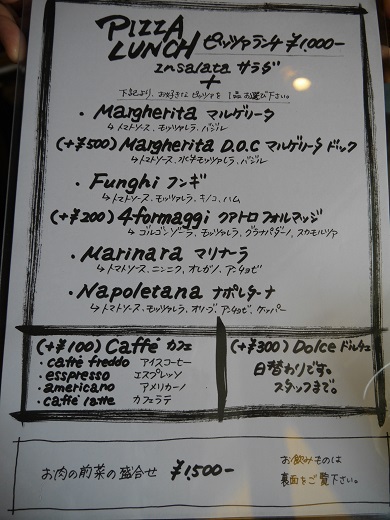 PIZZA
LUNCH ピッツァランチ ¥1,000-
Insalata サラダ
+
下記より、お好きなピッツァを1品お選び下さい。
・Margherita マルゲリータ
↳トマトソース、モッツァレラ、バジル
(+¥500) Margherita D.O.C マルゲリータ ドック
↳トマトソース、水牛モッツァレラ、バジル
・Funghi フンギ
↳トマトソース、モッツァレラ、キノコ、ハム
(+¥200) 4formaggi クアトロフォルマッジ
↳ゴルゴンゾーラ、モッツァレラ、グラナパダーノ、スカモルツァ
・Marinara マリナーラ
↳トマトソース、ニンニク、オレガノ、アンチョビ
・Napoletana ナポレターナ
↳トマトソース、モッツァレラ、オリーブ、アンチョビ、ケッパー
(+¥100) Caffé カフェ
・caffé freddo アイスコーヒー
・esspresso エスプレッソ
・americano アメリカーノ
・caffé latte カフェラテ
(+¥300) Dolce ドルチェ
日替わりです。
スタッフまで。
お肉の前菜の盛合せ ¥1,500-
お飲みものは
裏面をご覧下さい。